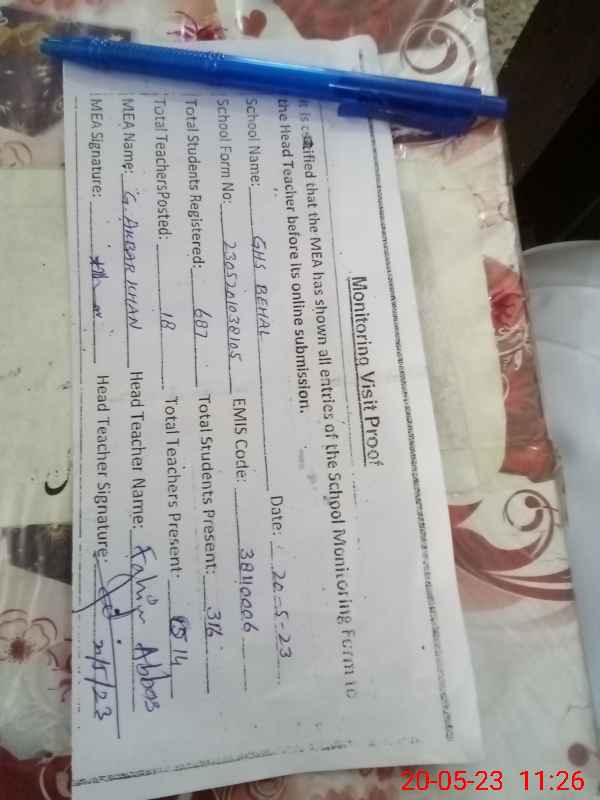 Monitoring Visit Proof
It is certified that the MEA has shown all entries of the School Monitoring Form to
the Head Teacher before its online submission.
School Name: GHS BEHAL Date: 20-5-23
School Form No: 2305201038105 EMIS Code: 38110006
Total Students Registered: 687 Total Students Present: 316
Total TeachersPosted: 18 Total Teachers Present: 14
MEA Name: G. AKBAR KHAN Head Teacher Name: Fahim Abbas
MEA Signature: Head Teacher Signature:
20-05-23 11:26